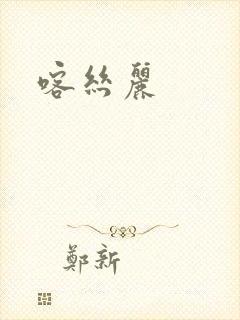 喀絲麗
鄭新